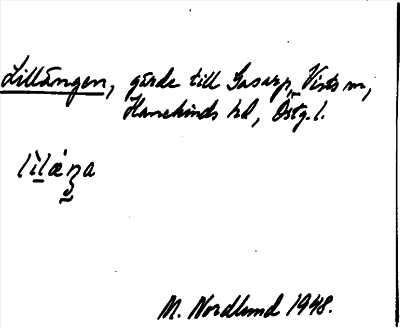 Lillängen, gärde till Gasarp, Vists sn,
Hanekinds hd, Östg. l.
lìlæ̀ŋa
M. Nordlund 1948.